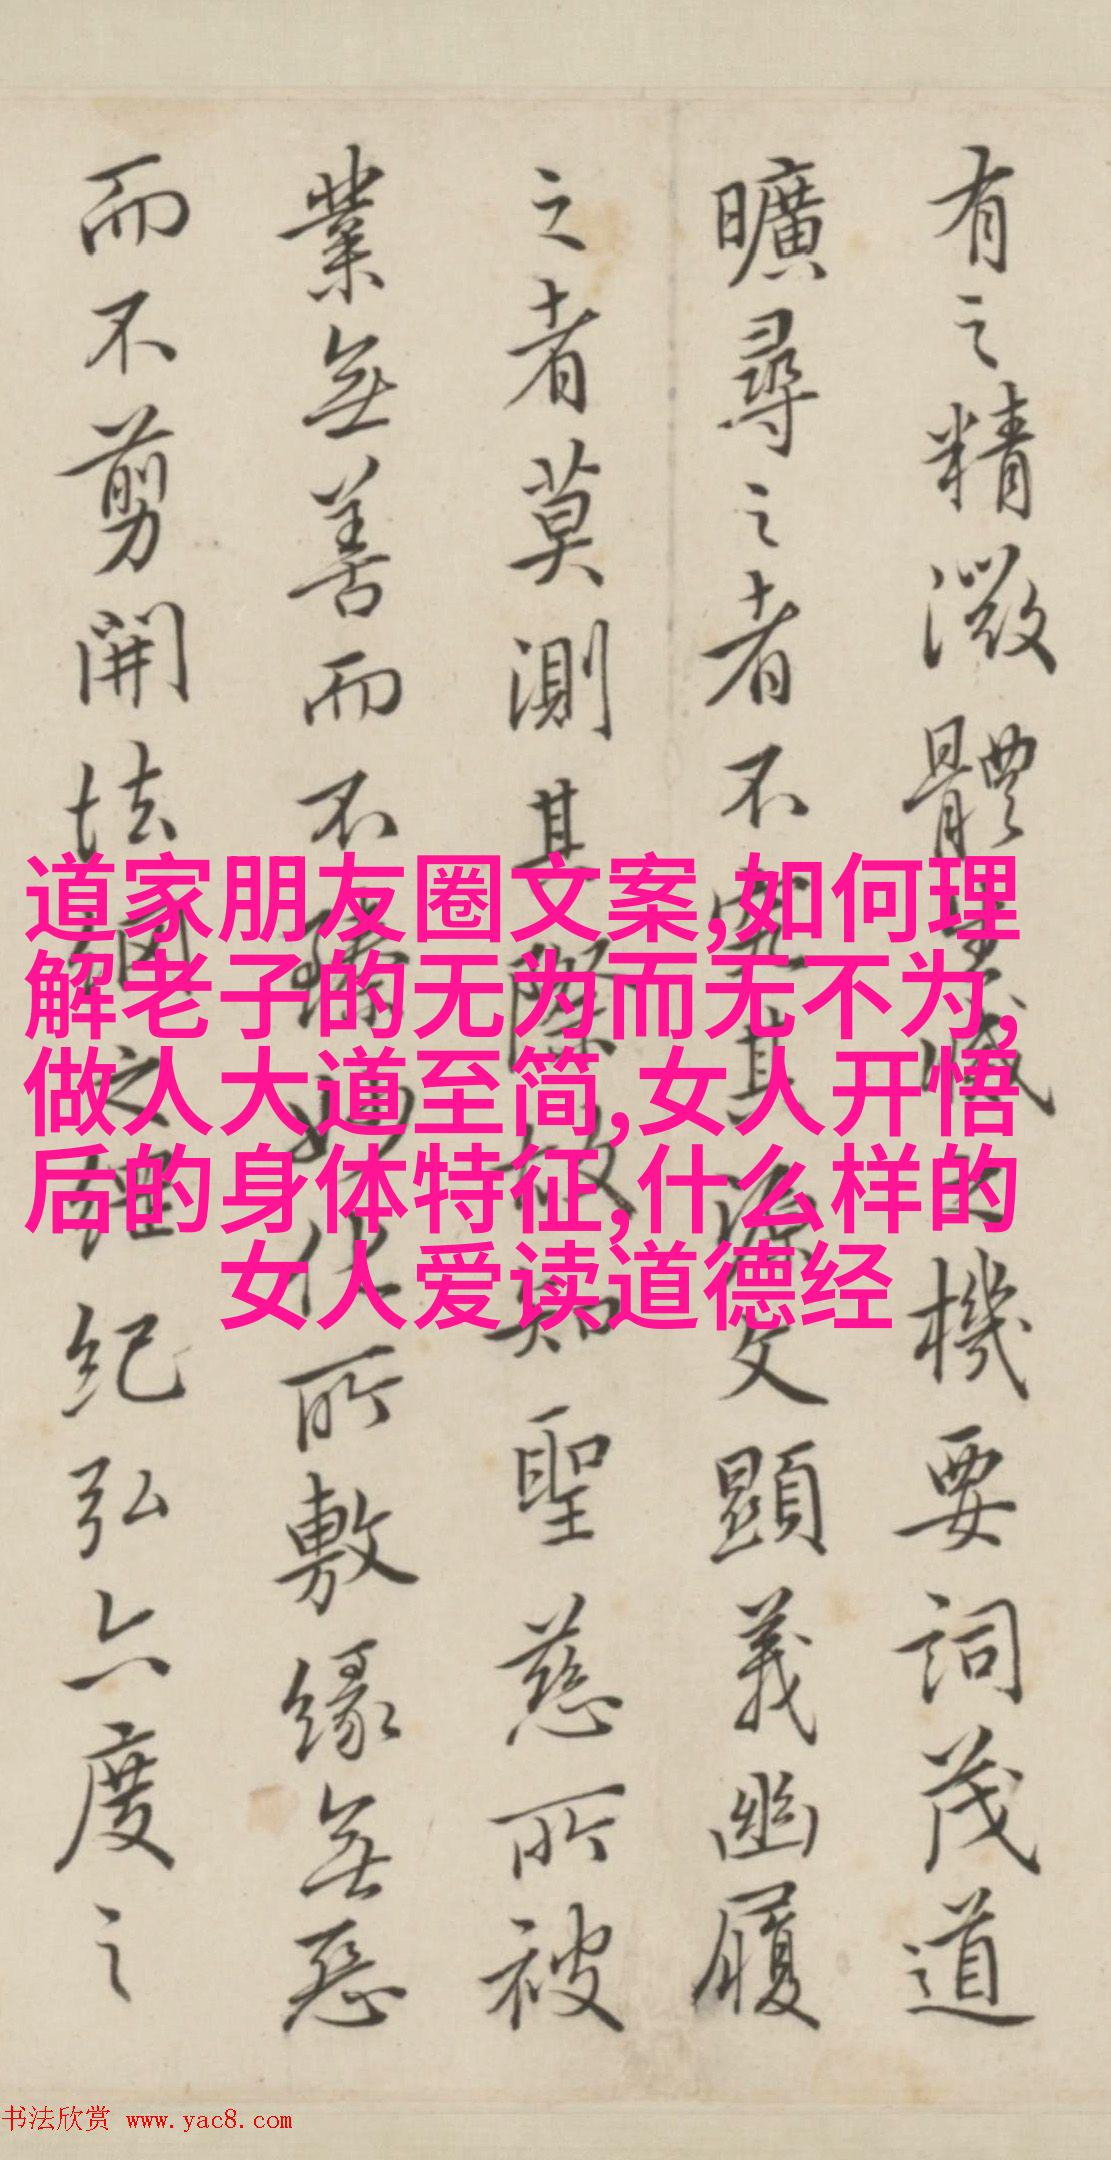 有之精微體生滅之機要詞茂道
曠尋之者不究其源文顯義幽履
之者莫測其際故知聖慈所被
業無善而不臻妙化所敷緣無惡
而不剪開法網之綱紀弘六度之
道家朋友圈文案,如何理
解老子的无为而无不为,
做人大道至简,女人开悟
后的身体特征,什么样的
女人爱读道德经
书法欣赏 www.yac8.com